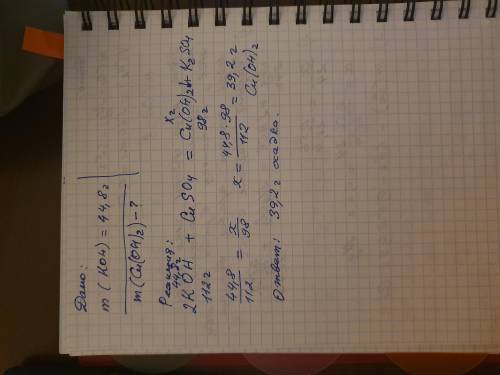 Дано:
m (KOH) = 44,8г
m (Cu(OH)2) - ?
Реакция:
44,8г xг
2KOH + CuSO4 = Cu(OH)2↓ + K2SO4
112г 98г
44,8/112 = x/98 x = 44,8·98/112 = 39,2 г
Cu(OH)2
Ответ: 39,2 г осадка.